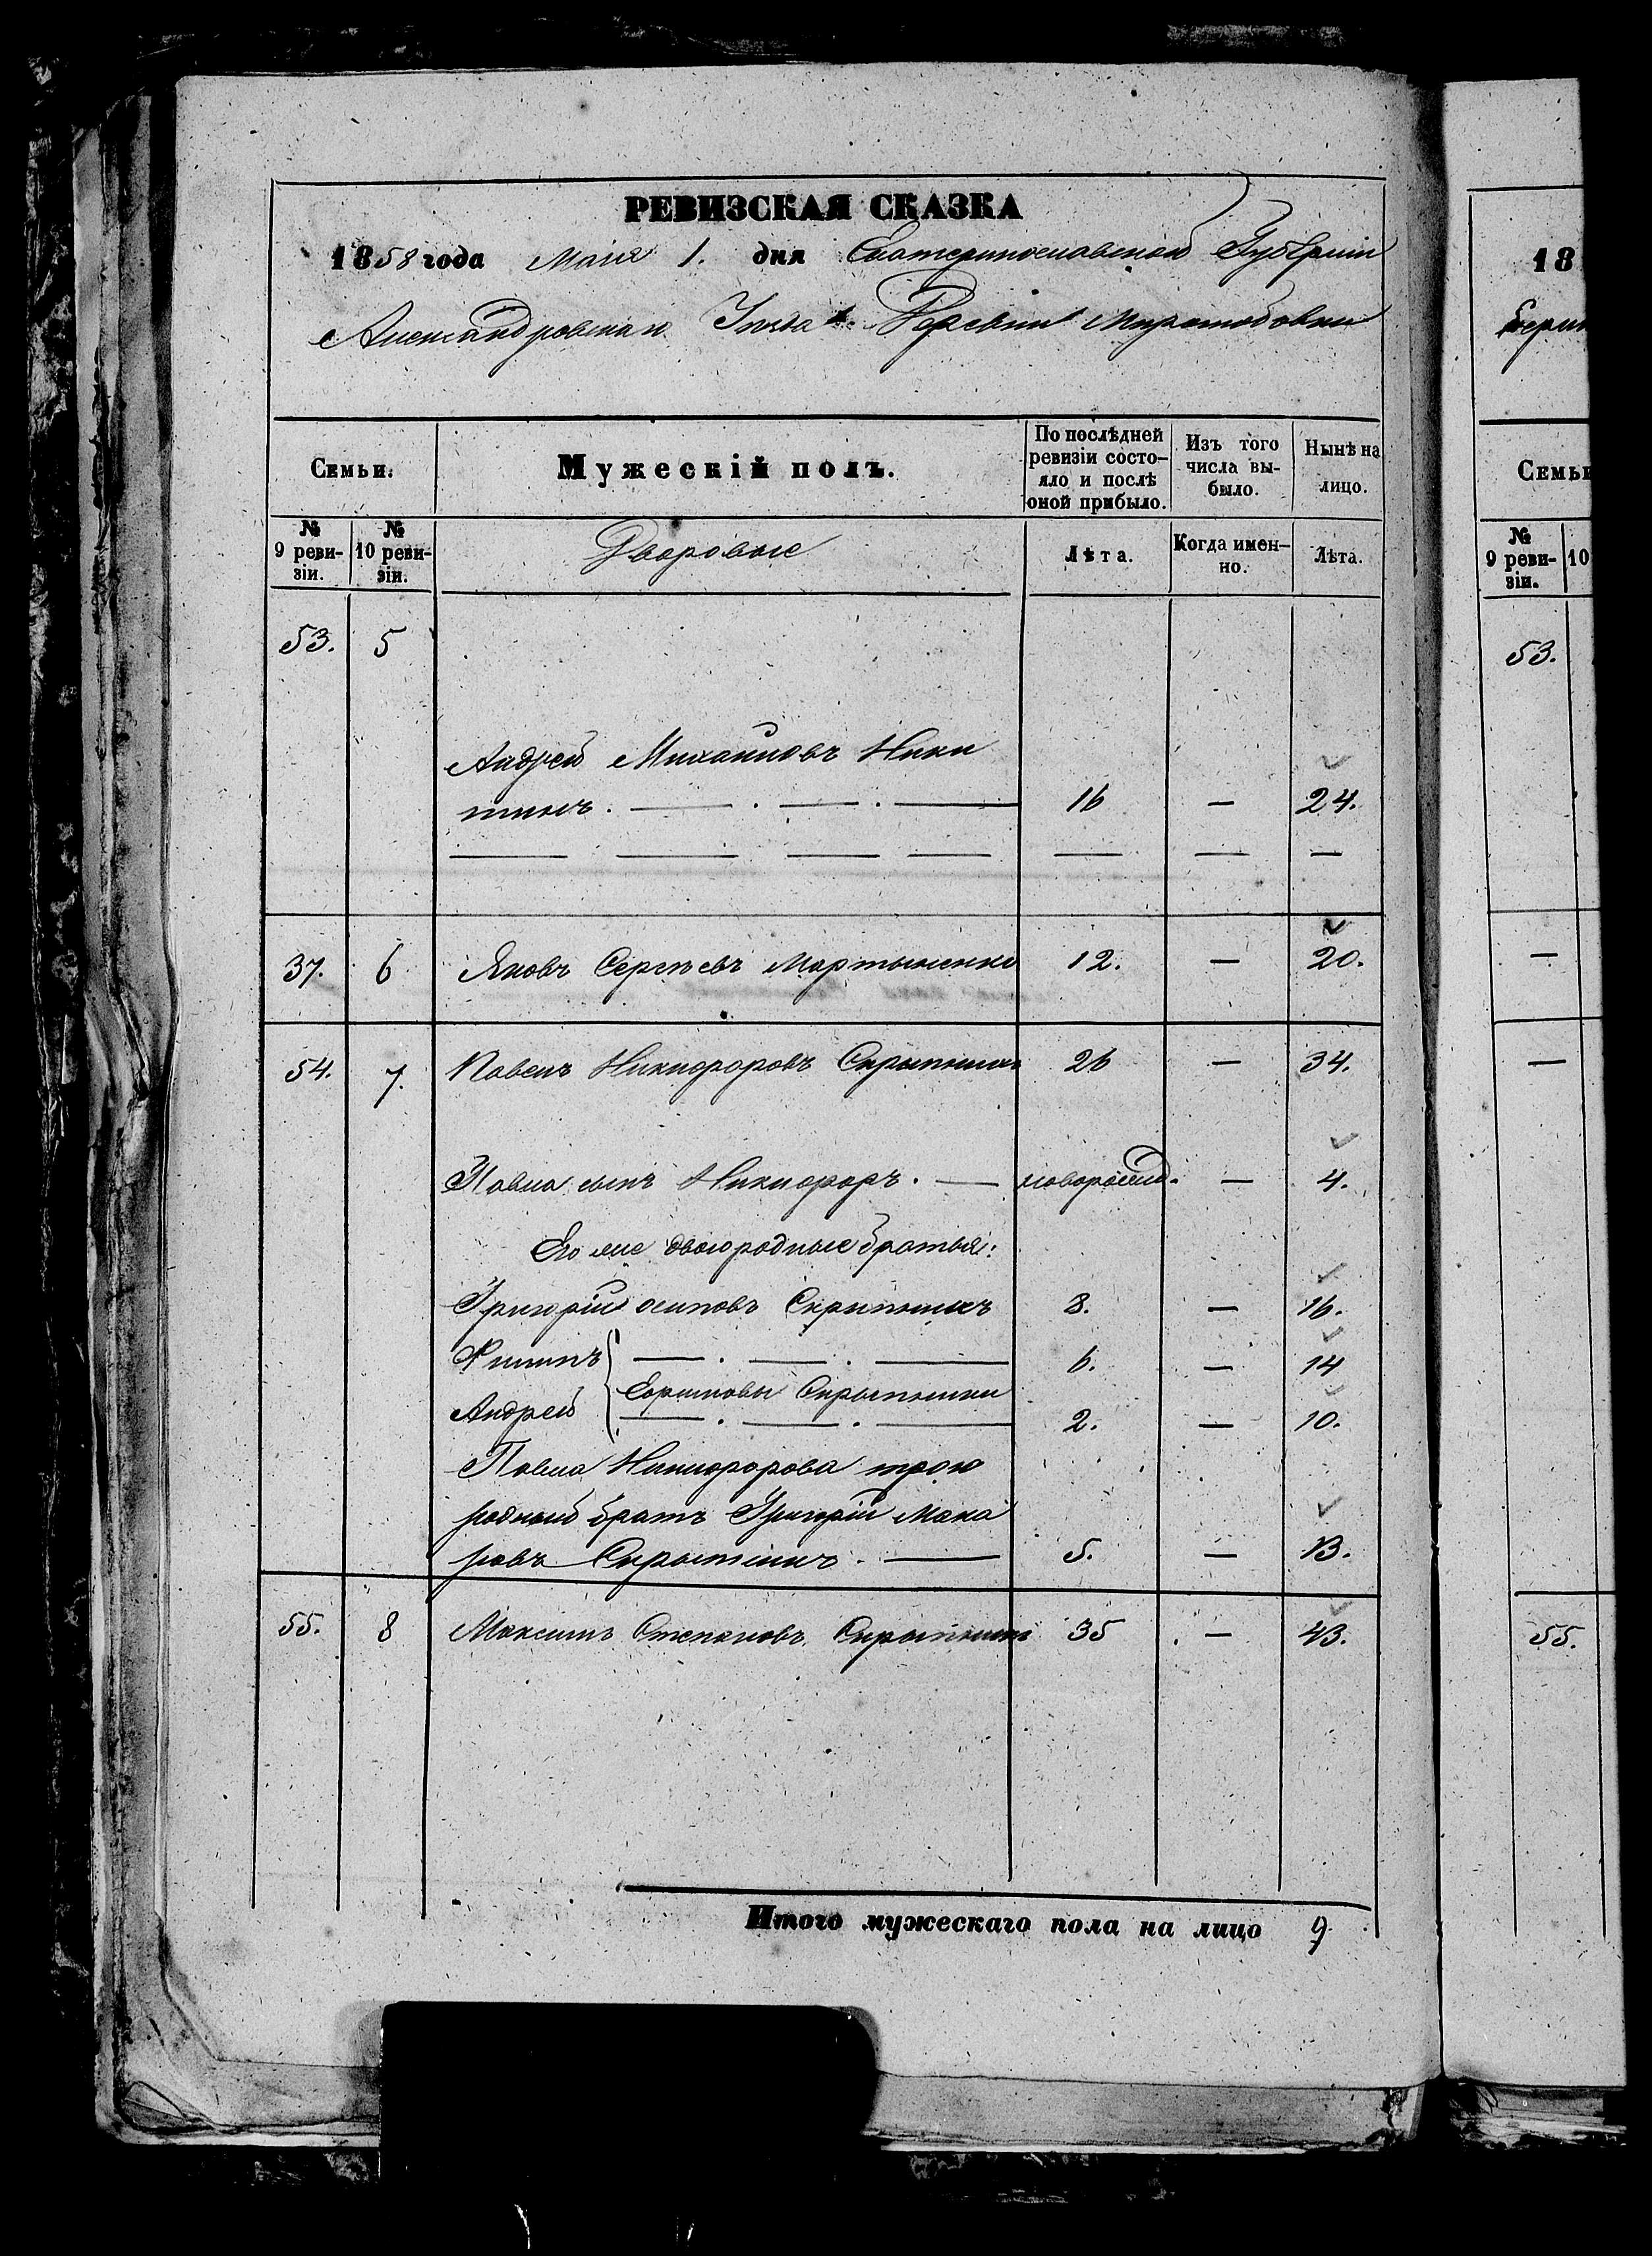 РЕВИЗСКАЯ СКАЗКА
1858 года Маія 1. дня Екатеринославской Губерніи
Александровскаго Уѣзда Деревни Миролюбовки
Семьи: Мужескій полъ. По послѣдней ревизіи состояло и послѣ оной прибыло. Изъ того числа выбыло. Нынѣ на лицо.
№ 9 ревизіи. № 10 ревизіи. Дворовые Лѣта. Когда именно. Лѣта.
53. 5
Андрей Михаиловъ Ники
тинъ. — . — . — 16 — 24.
— — — — — — —
37. 6 Яковъ Сергѣевъ Мартыненко 12. — 20.
54. 7. Павелъ Никифоровъ Скрыпникъ 26 — 34.
Павла сынъ Никифоръ. — новорожд. — 4.
Его же двоюродные братья:
Григорій Осиповъ Скрыпникъ 8. — 16.
Филипъ — . — . — 6. — 14
Ефимовы Скрыпники
Андрей — . — . — 2. — 10.
Павла Никифорова трою
родный братъ Григорій Мака
ровъ Скрыпникъ. — 5. — 13.
55. 8 Максимъ Степановъ Скрыпникъ 35 — 43.
Итого мужескаго пола на лицо 9.
18
Семьи
№ 9 ревизіи. 10
53.
—
—
55.